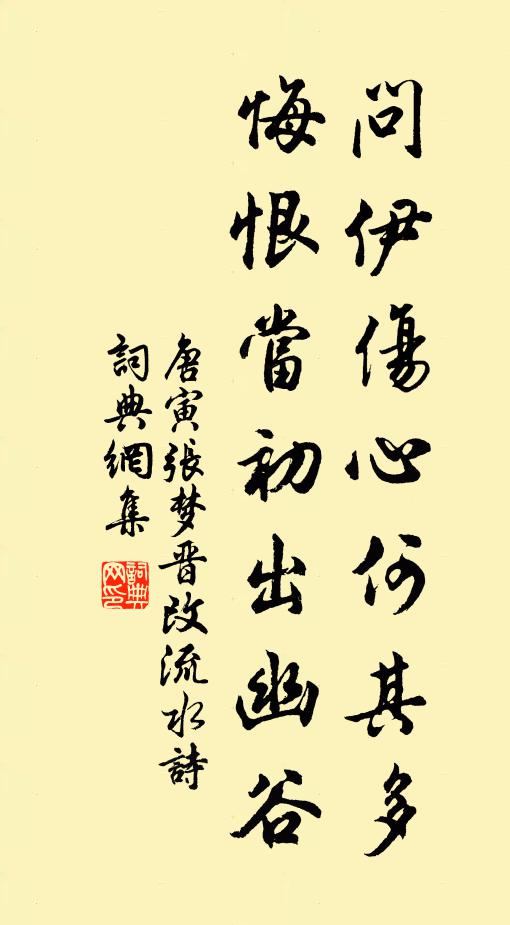 問伊傷心何其多
悔恨當初出幽谷
唐寅張梦晋改流水詩
詞典網集
詞典
网印